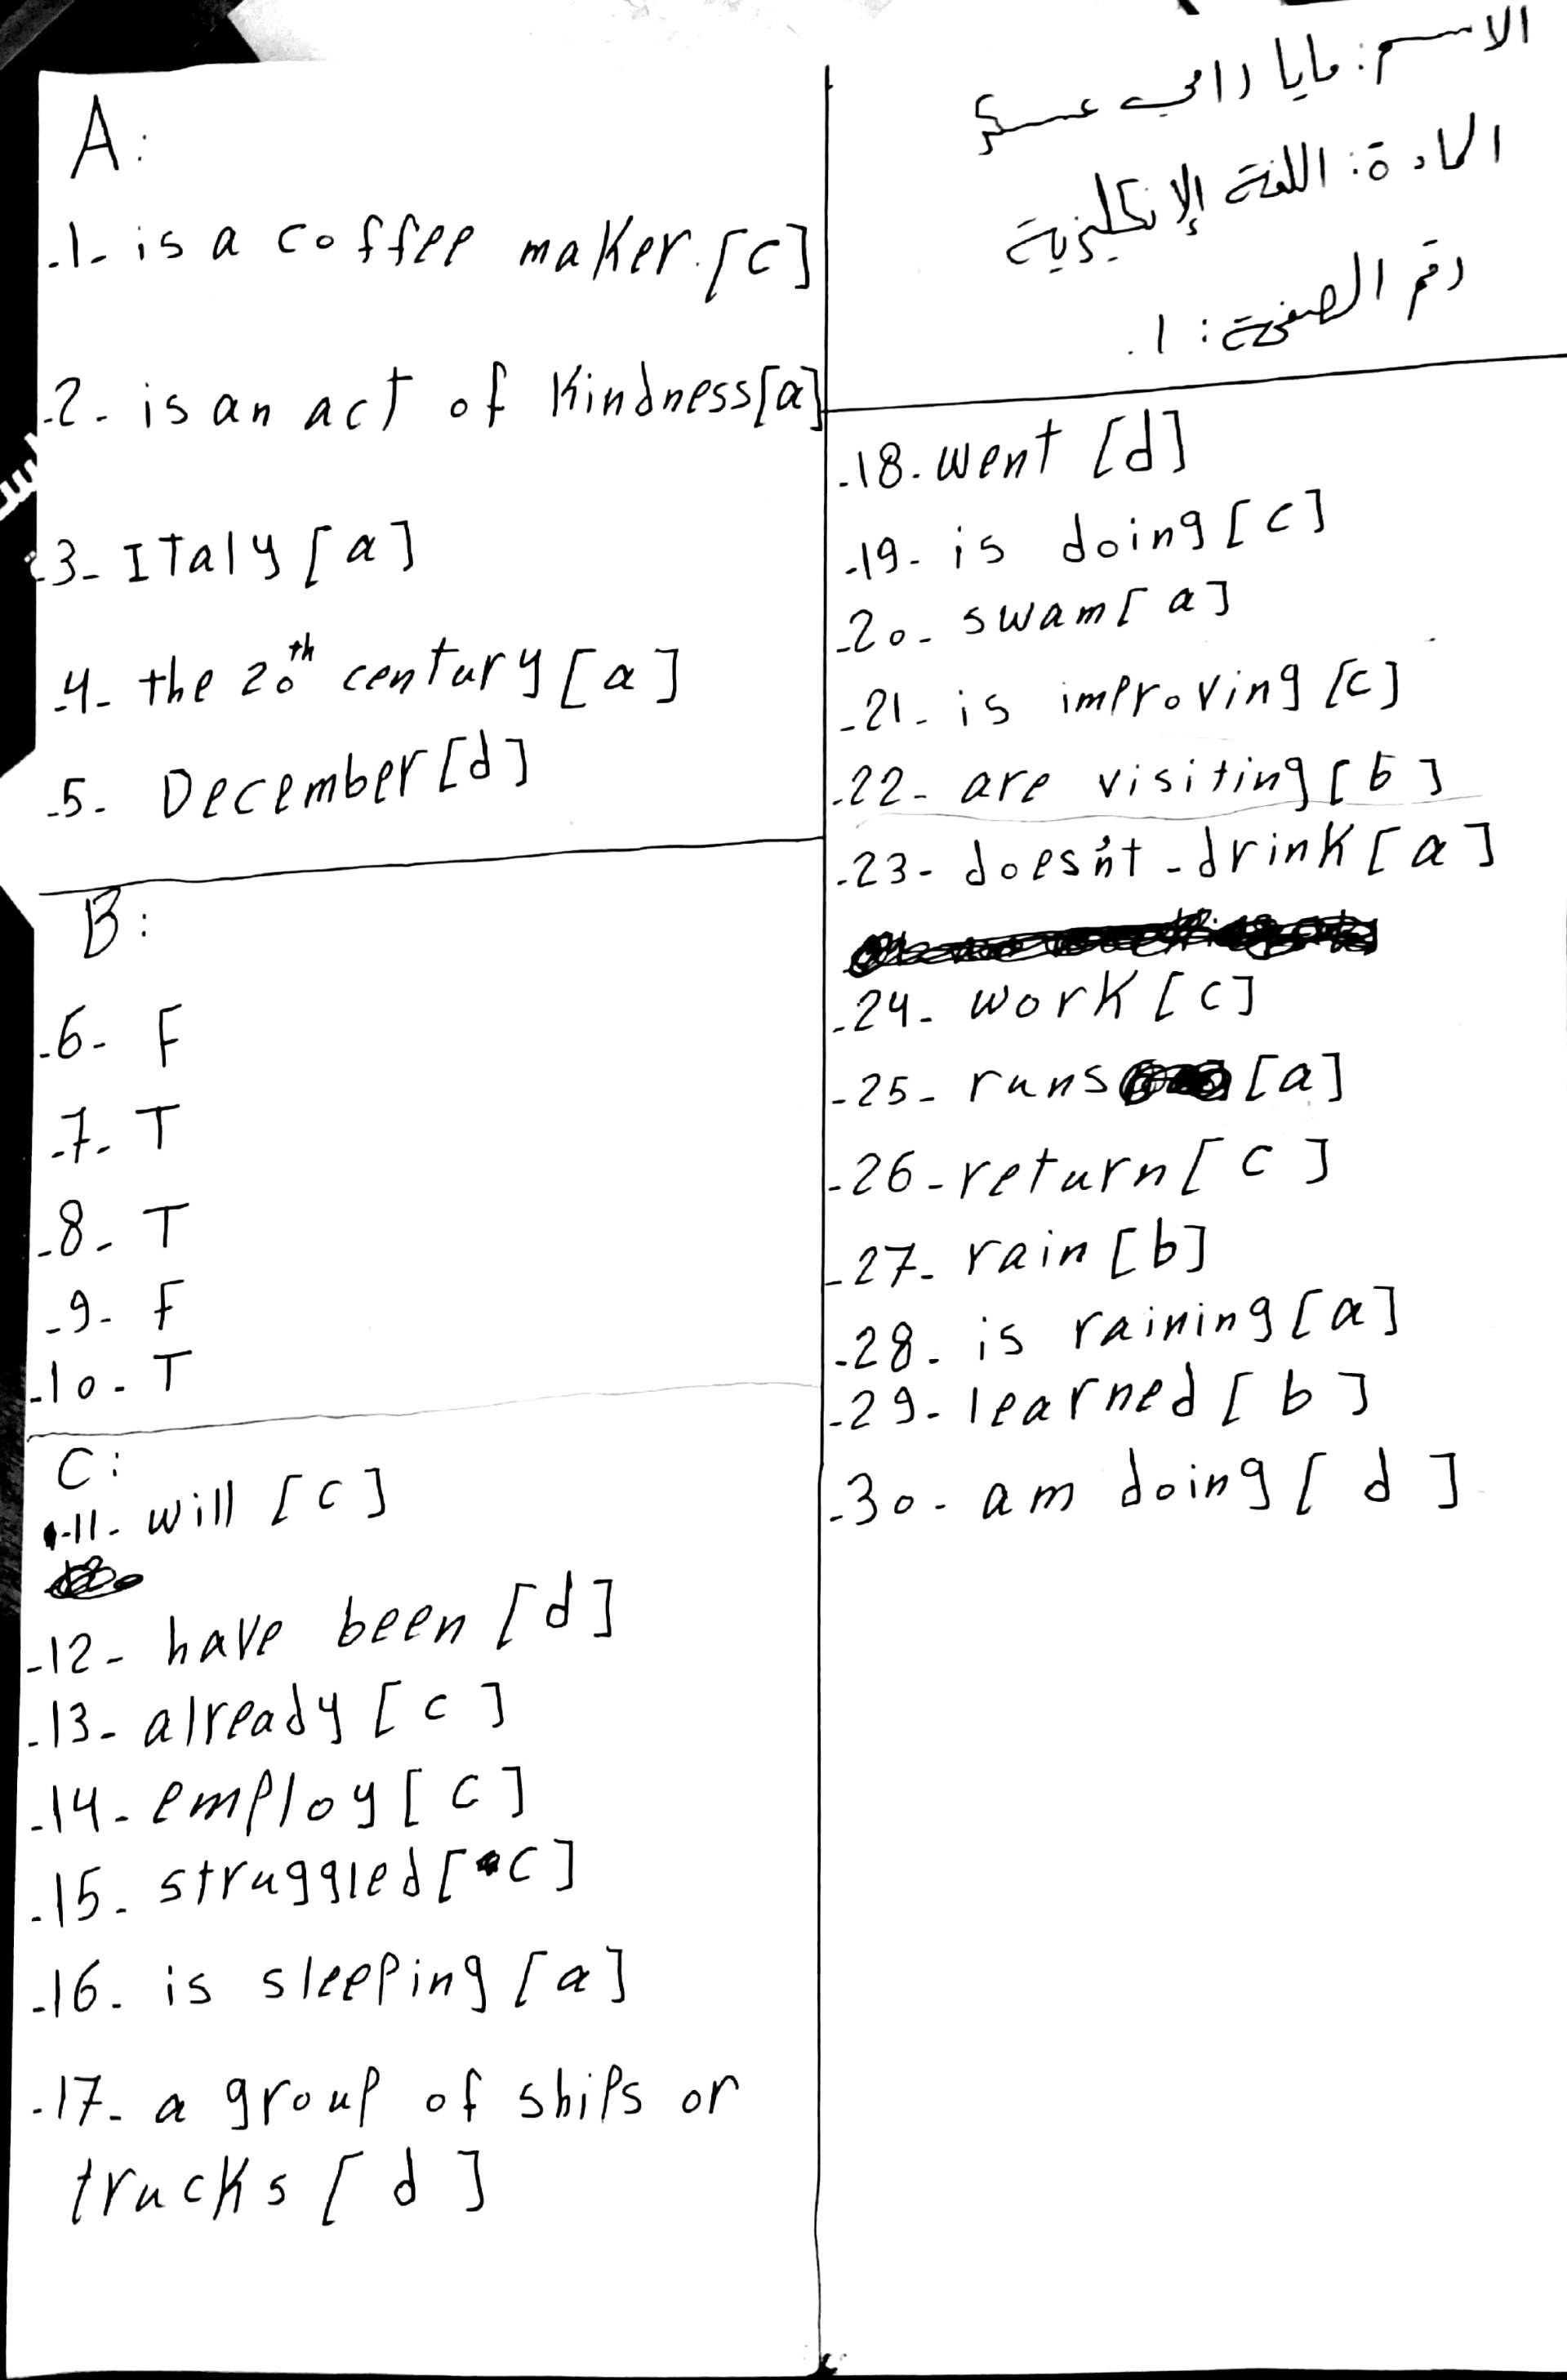 الاسم: مايا رامي عسكر
المادة: اللغة الإنكليزية
رقم الصفحة: ١.
A:
-1- is a coffee maker. [c]
-2- is an act of Kindness [a]
-3- ITaly [a]
-4- the 20th century [a]
-5- December [d]
B:
-6- F
-7- T
-8- T
-9- F
-10- T
C:
-11- will [c]
-12- have been [d]
-13- already [c]
-14- employ [c]
-15- struggled [c]
-16- is sleeping [a]
-17- a group of ships or
trucks [d]
-18- went [d]
-19- is doing [c]
-20- swam [a]
-21- is improving [c]
-22- are visiting [b]
-23- doesn't - drink [a]
-24- work [c]
-25- runs [a]
-26- return [c]
-27- rain [b]
-28- is raining [a]
-29- learned [b]
-30- am doing [d]